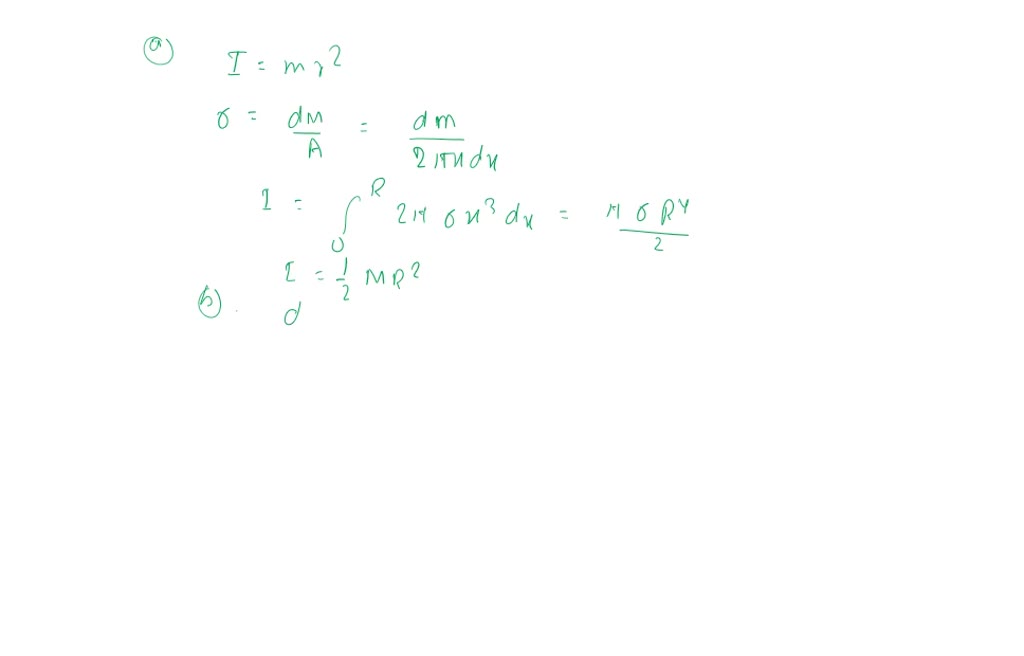 a) I = mr²
σ = dM/A = dm/2πx dx
I = ∫₀ᴿ 2π σ x³ dx = π σ R⁴/2
I = 1/2 MR²
b). d